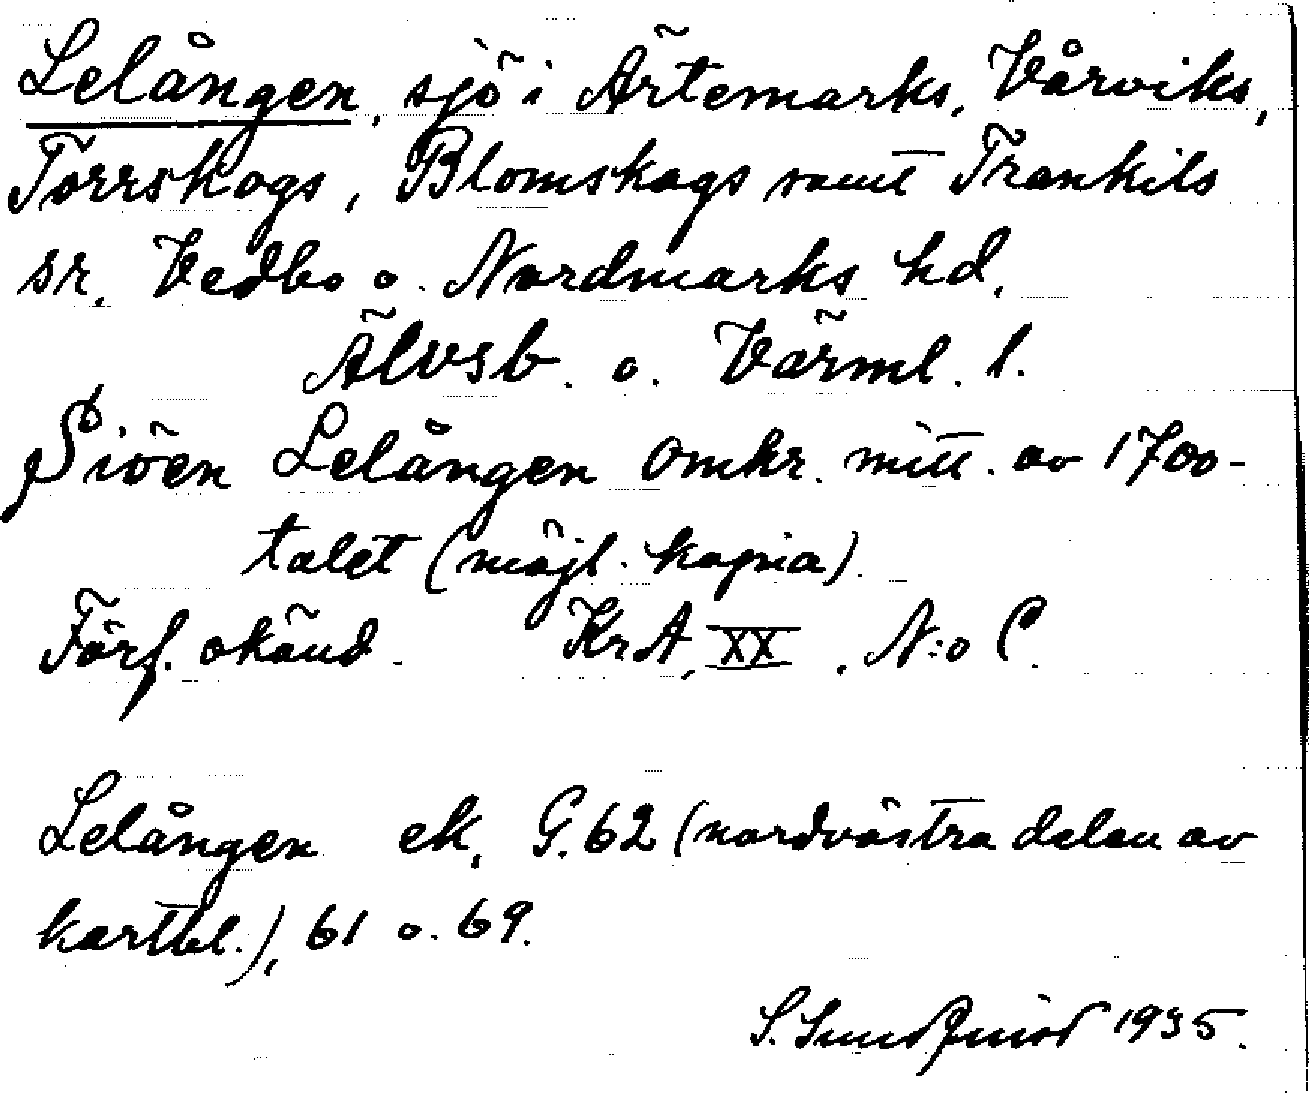 Lelången, sjö i Ärtemarks, Vårviks,
Torrskogs, Blomskogs samt Trankils
sr. Vedbo o. Nordmarks hd.
Älvsb. o. Värml. l.
Siöen Lelången omkr. mitt. av 1700-
talet (möjl. kopia).
Förf. okänd. KrA, XX, N:o C.
Lelången ek. G. 62 (nordvästra delen av
kartbl.), 61 o. 69.
S. 1935.